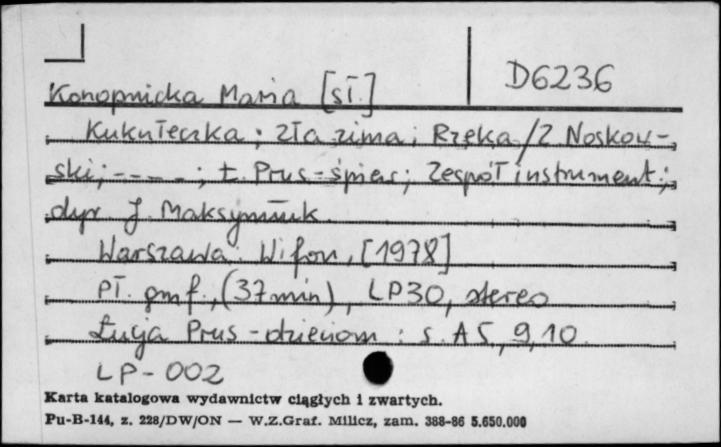 D6236
Konopnicka Maria [sł.]
Kukułeczka; Zła zima; Rzeka / Z Noskow-
ski; ----; Ł. Prus - śpiew; Zespół instrument;
dyr J. Maksymiuk
Warszawa. Wifon, [1978]
Pł. gmf., (37 min), LP30, stereo
Łucja Prus - dzieciom : s. A5, 9, 10
LP - 002
Karta katalogowa wydawnictw ciągłych i zwartych.
Pu-B-144, z. 228/DW/ON — W.Z.Graf. Milicz, zam. 388-86 5.650.000